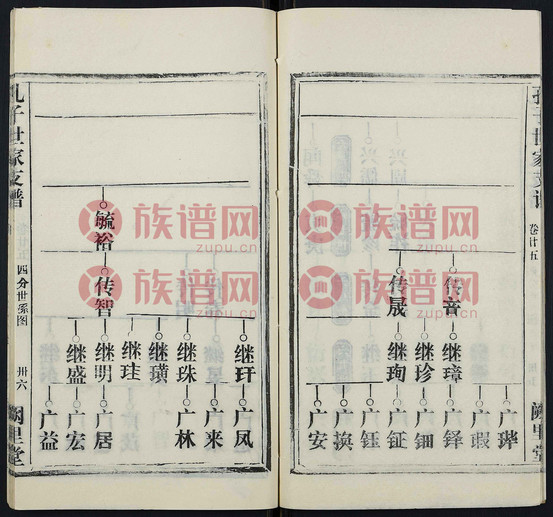 孔子世家支谱
卷廿五
阙里堂
传音
传晟
继璋
继珍
继珣
广瑕
广铎
广钿
广钲
广钰
广换
广安
继玕
继珠
继璜
继珪
继明
继盛
广凤
广来
广林
广居
广宏
广益
毓裕
传智
孔子世家支谱
四分世系图
卅六
阙里堂
族谱网
zupu.cn
族谱网
zupu.cn
族谱网
zupu.cn
族谱网
zupu.cn